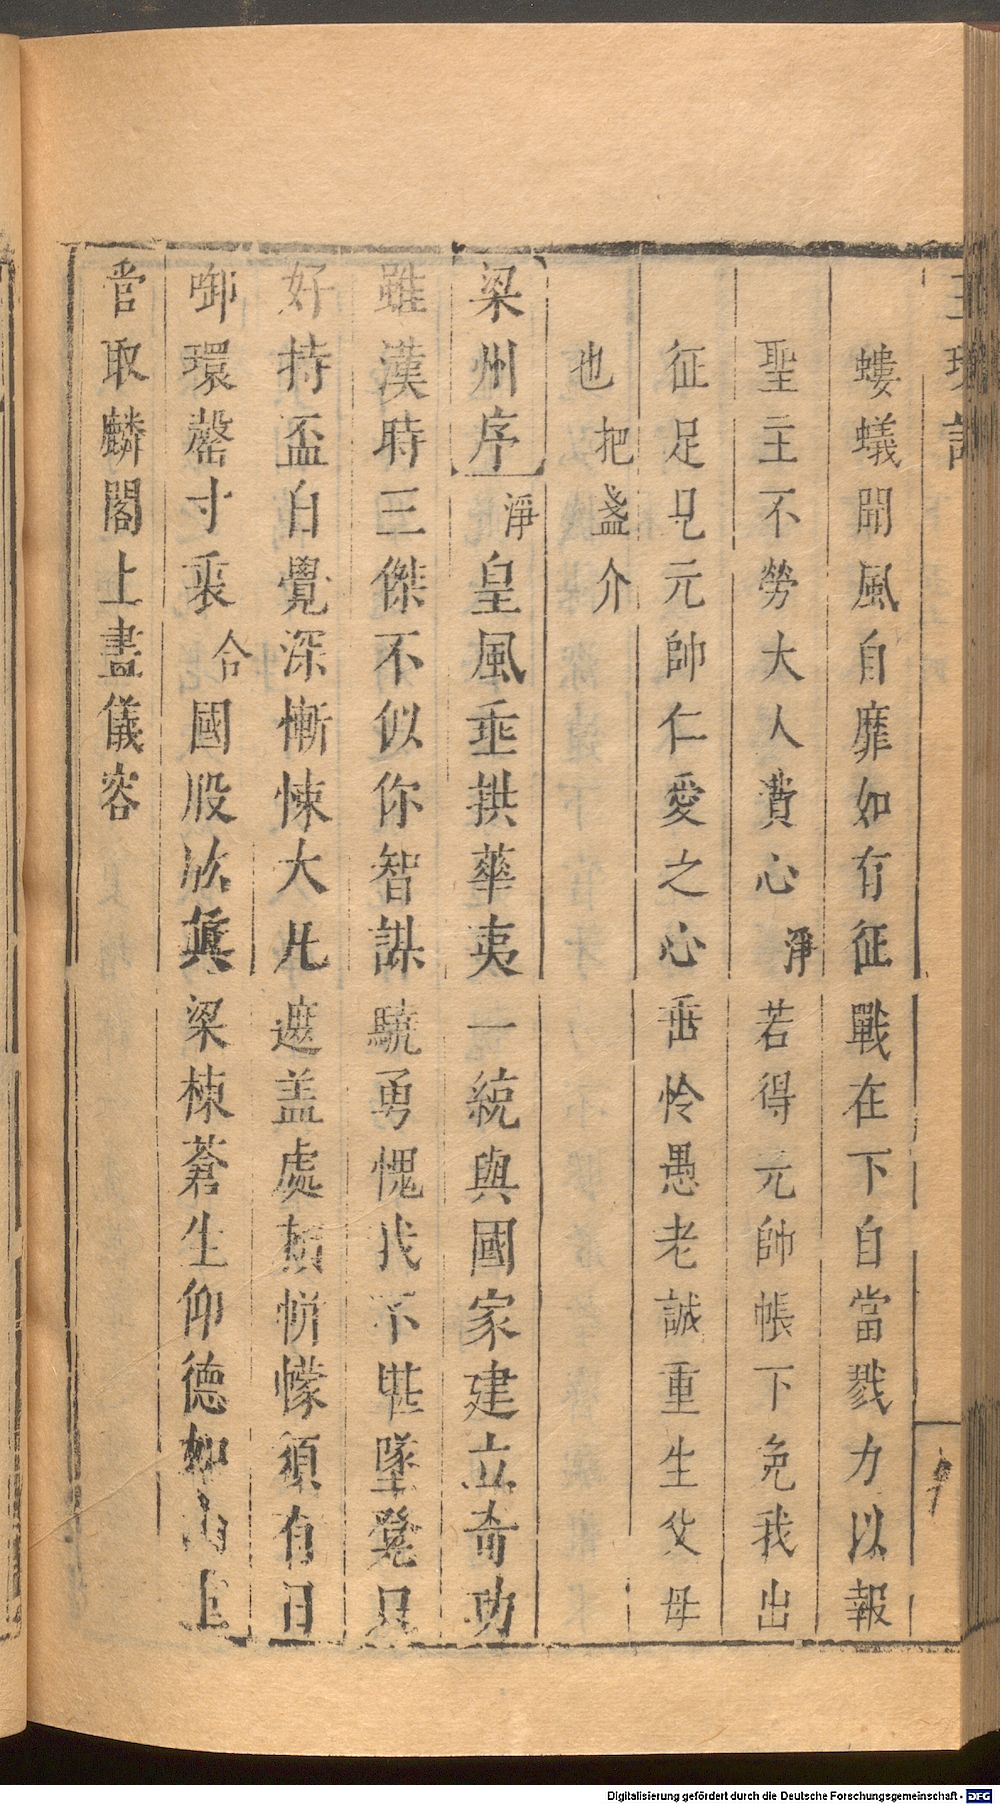 螻蟻聞風自靡如有征戰在下自當戮力以報
聖主不勞大人費心淨若得元帥帳下免我出
征足見元帥仁愛之心垂怜愚老誠重生父母
也把盞介
梁州序淨皇風垂拱華夷一統與國家建立奇功
雖漢時三傑不似你智謀驍勇愧我不堪墜凳只
好持盃自覺深慚悚大凡遮盖處荷帡幪須有日
啣環罄寸衷令國股肱真梁棟蒼生仰德如山上
當取麟閣上畫儀容
Digitalisierung gefördert durch die Deutsche Forschungsgemeinschaft - DFG